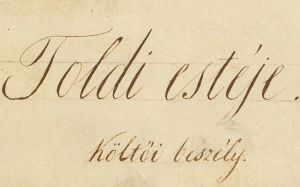 Toldi estéje.
Költői beszély.